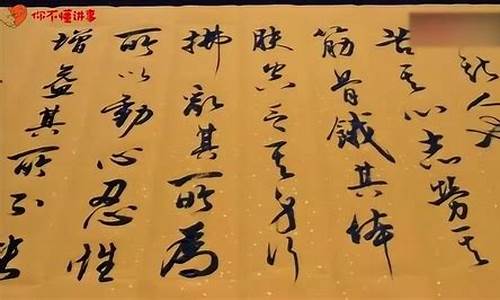 你不懂讲事
人
苦其心志劳其
筋骨餓其体
肤空乏其身行
拂乱其所為
所以動心忍性
增益其所不能